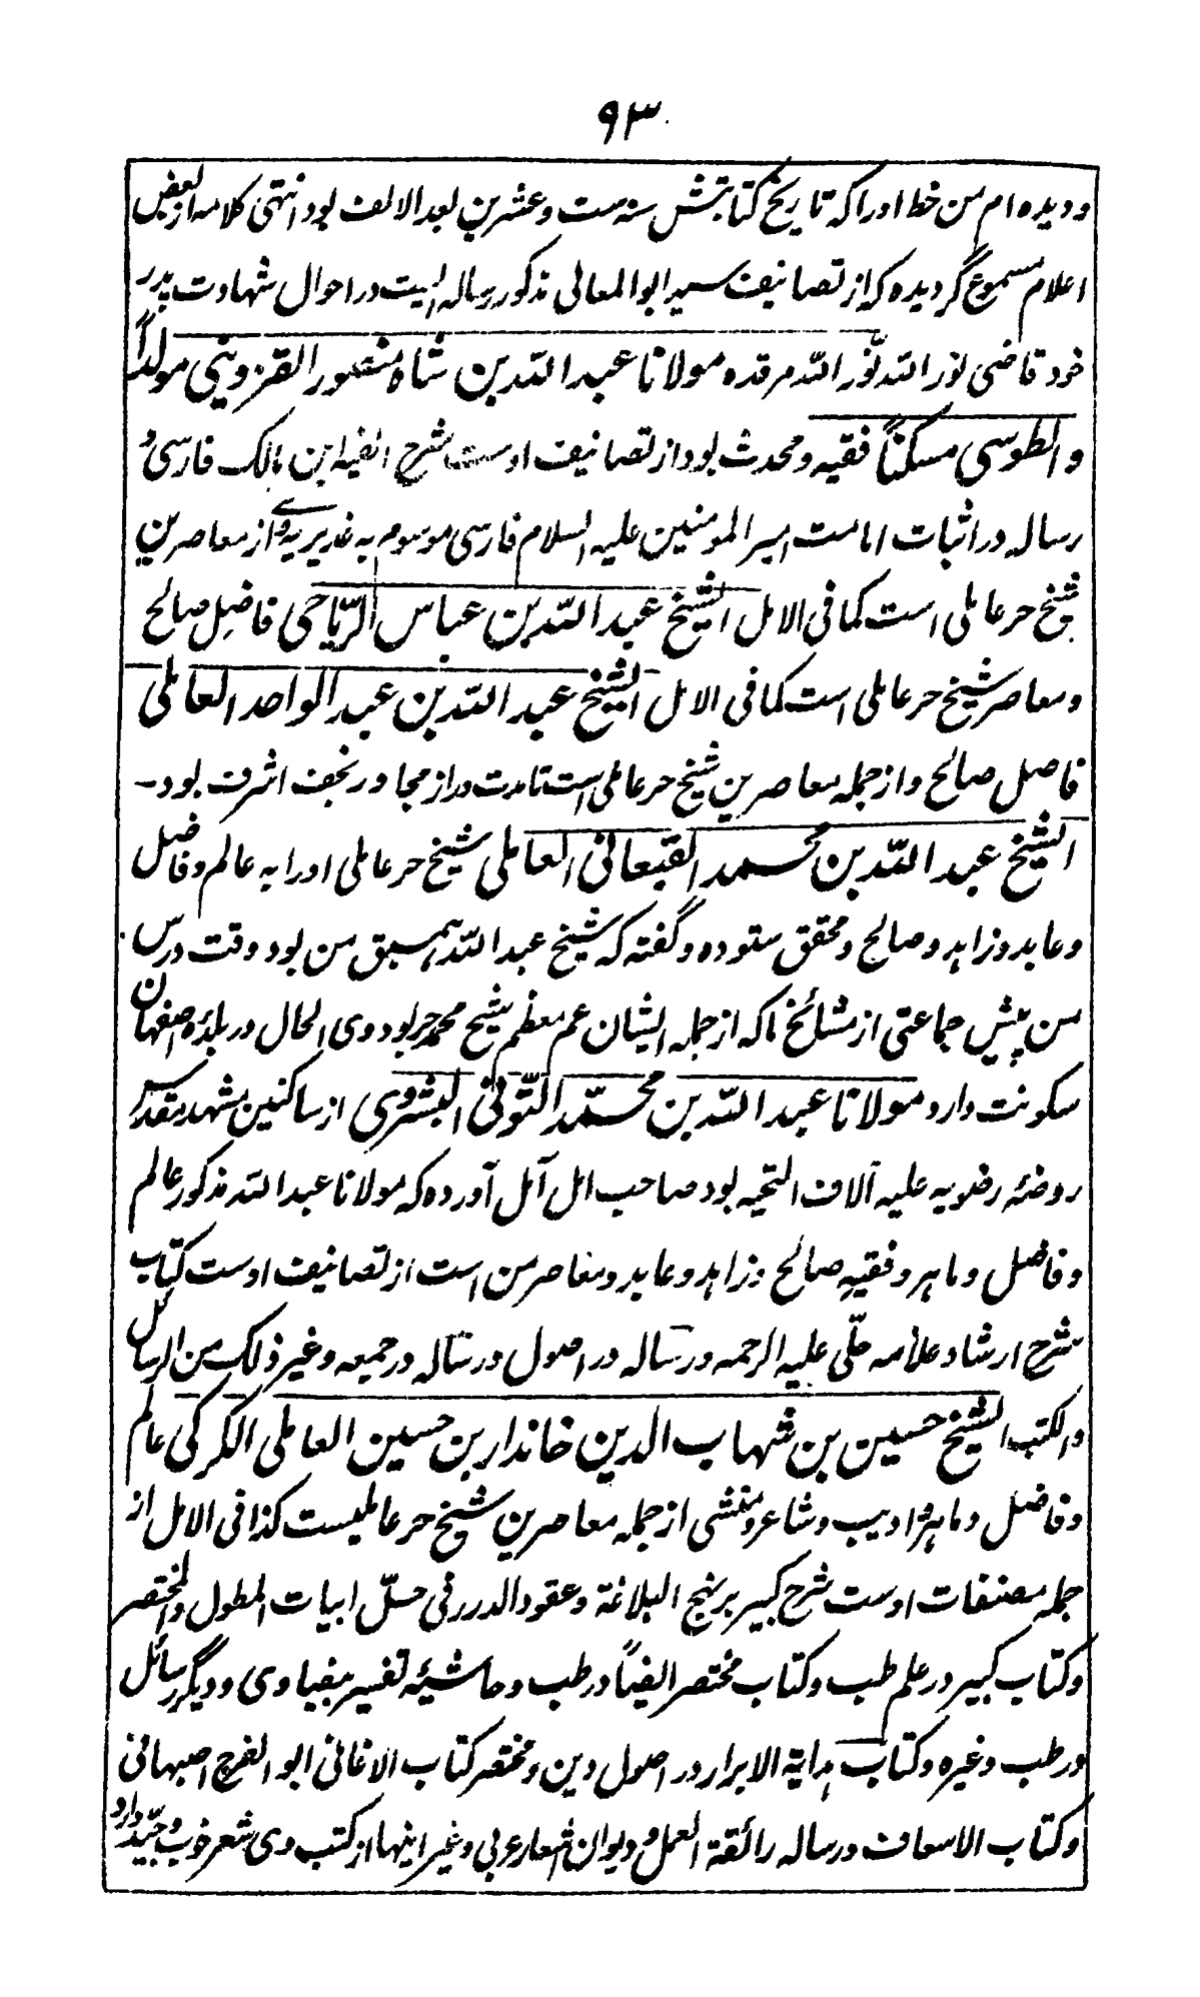 ۹۳
و دیده ام من خط او را که تاریخ کتابتش سنه ست و عشرین بعد الالف بود انتهی کلامه از بعض
اعلام مسموع گردیده که از تصانیف سید ابو المعالی مذکور رساله ایست در احوال شهادت پدر
خود قاضی نور الله نوّر الله مرقده مولانا عبد الله بن شاه منصور القزوینی مولداً
و الطوسی مسکناً فقیه و محدث بود از تصانیف اوست شرح الفیه ابن مالک فارسی و
رساله در اثبات امامت امیر المومنین علیه السلام فارسی موسوم به غدیریه وی از معاصرین
شیخ حر عاملی است کما فی الامل الشیخ عبد الله بن عباس الریّاحی فاضل صالح
و معاصر شیخ حر عاملی است کما فی الامل الشیخ عبد الله بن عبد الواحد العاملی
فاضل صالح و از جمله معاصرین شیخ حر عاملی است تا مدت دراز مجاور نجف اشرف بود ـ
الشیخ عبد الله بن محمد القبعانی العاملی شیخ حر عاملی او را به عالم و فاضل
و عابد و زاهد و صالح و محقق ستوده و گفته که شیخ عبد الله همسبق من بود وقت درس
من پیش جماعتی از مشائخ ما که از جمله ایشان عم معظم شیخ محمد حر بود وی الحال در بلده اصفهان
سکونت دارد مولانا عبد الله بن محمّد التّونی البشروی از ساکنین مشهد مقدس
روضه رضویه علیه آلاف التحیه بود صاحب امل آمل آورده که مولانا عبد الله مذکور عالم
و فاضل و ماهر و فقیه صالح و زاهد و عابد و معاصر من است از تصانیف اوست کتاب
شرح ارشاد علامه حلّی علیه الرحمه و رساله در اصول و رساله در جمعه و غیر ذلک من الرسائل
و الکتب الشیخ حسین بن شهاب الدین خاندار بن حسین العاملی الکرکی عالم
و فاضل و ماهر و ادیب و شاعر و منشی از جمله معاصرین شیخ حر عاملیست کذا فی الامل از
جمله مصنفات اوست شرح کبیر بر نهج البلاغة و عقود الدرر فی حلّ ابیات المطول و المختصر
و کتاب کبیر در علم طب و کتاب مختصر ایضاً در طب و حاشیه تفسیر بیضاوی و دیگر رسائل
در طب و غیره و کتاب هدایة الابرار در اصول دین و مختصر کتاب الاغانی ابو الفرج اصبهانی
و کتاب الاسعاف و رساله رائقة العمل و دیوان اشعار عربی و غیر اینها از کتب وی شعر خوب و جیّد دارد